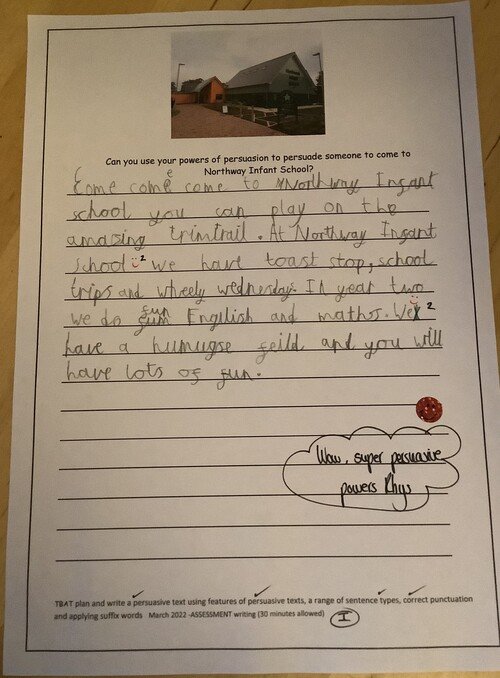 Can you use your powers of persuasion to persuade someone to come to
Northway Infant School?
Come come come to Northway Ingant
school you can play on the
amazing trimtrail. At Northway Ingant
School 2 we have toast stop, school
trips and wheely wednesday. In year two
we do fun Engilish and maths. We 2
have a humugse feild and you will
have lots of fun.
Wow, super persuasive
powers Rhys
TBAT plan and write a persuasive text using features of persuasive texts, a range of sentence types, correct punctuation
and applying suffix words March 2022 -ASSESSMENT writing (30 minutes allowed) I